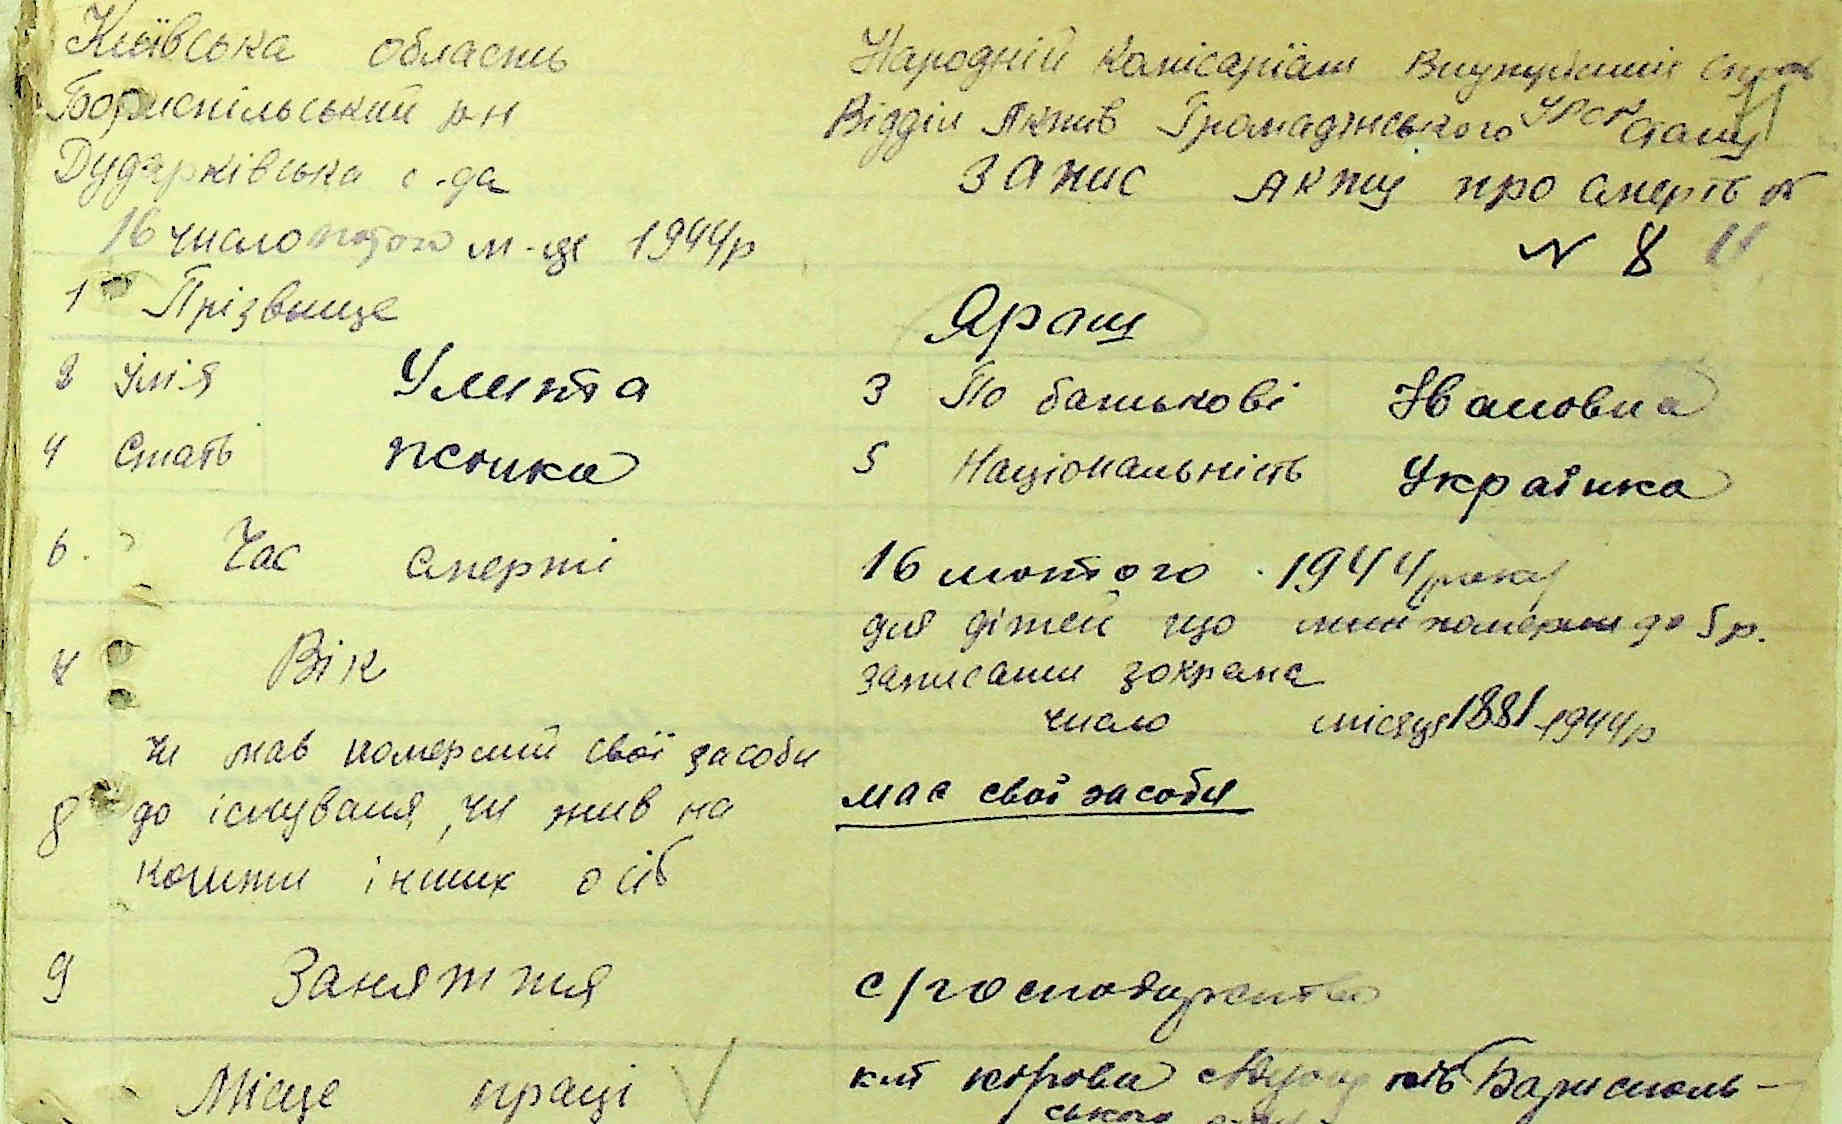 Київська область
Бориспільський р-н
Дударківська с-да
16 число лютого м-ця 1944р
Народній Комісаріат Внутрішніх Справ
УРСР
Відділ Актів Громадянського Стану
Запис акту про смерть
N 8
1 Прізвище Ярош
2 Імія Улита 3 По батькові Ивановна
4 Стать жонка 5 Національність Українка
6. Час смерті 16 лютого 1944 року
7 Вік для дітей що померли до 5 р.
записати зокрема
число місяця 1881 1944р
8 Чи мав померший свої засоби
до існуваня, чи жив на
кошти інших осіб
має свої засоби
9 Заняття с/господарство
Місце праці к-п Кірова Борисполь-
ського